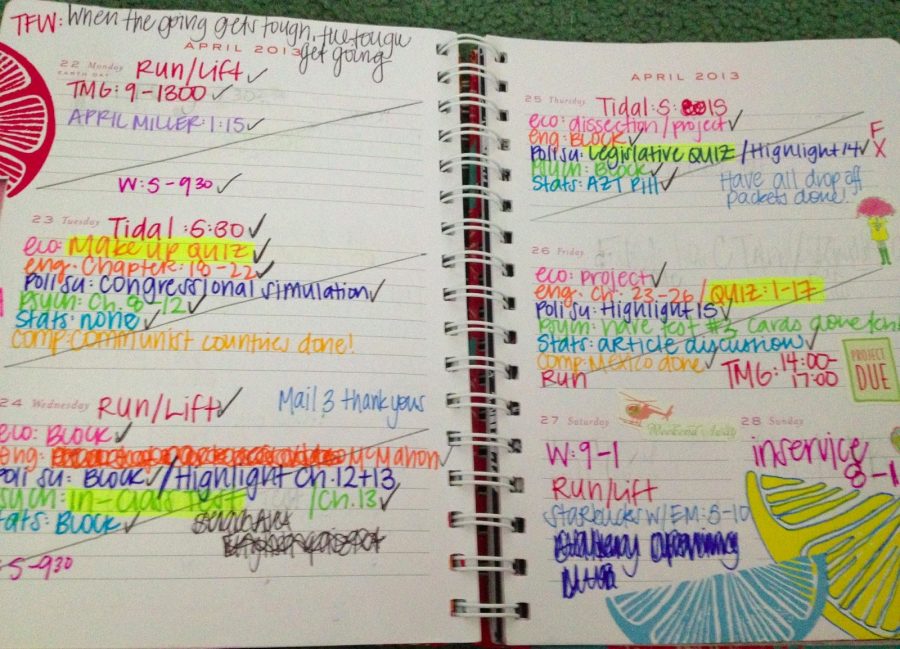 TFW: When the going gets tough, the tough
get going
APRIL 2013
22 Monday Run/Lift ✓
EARTH DAY
TMG: 9-1300 ✓
APRIL MILLER: 1:15 ✓
W: 5-930 ✓
23 Tuesday Tidal: 5:30 ✓
eco: Make up quiz ✓
eng: Chapter: 18-22 ✓
Poli su: Congressional simulation ✓
Psych: Ch. 8-12 ✓
Stats: none ✓
Comp: Communist countries done!
24 Wednesday Run/Lift ✓ Mail 3 thank yous
eco: BLOCK ✓
eng: McMahon ✓
Poli su: Block ✓ / Highlight Ch. 12+13
Psych: in-class test / Ch. 13 ✓
Stats: Block ✓
5-930
APRIL 2013
25 Thursday Tidal: 5: 15
eco: dissection/project ✓
eng: BLOCK ✓
Poli su: Legislative QUIZ / Highlight 14 ✓
F
X
Psych: Block ✓
Stats: AZT Pill ✓
Have all drop off
packets done!
26 Friday
eco: project ✓
eng: Ch. 23-26 / QUIZ: 1-17
Poli su: Highlight 15 ✓
Psych: have test #3 cards done
Stats: article discussion ✓
Comp: Mexico done ✓
Run TMG: 14:00-
17:00
PROJECT
DUE
27 Saturday
Weekend
W: 9-1
Run/Lift
Starbucks w/ EM: 8-10
28 Sunday
inservice
8-1